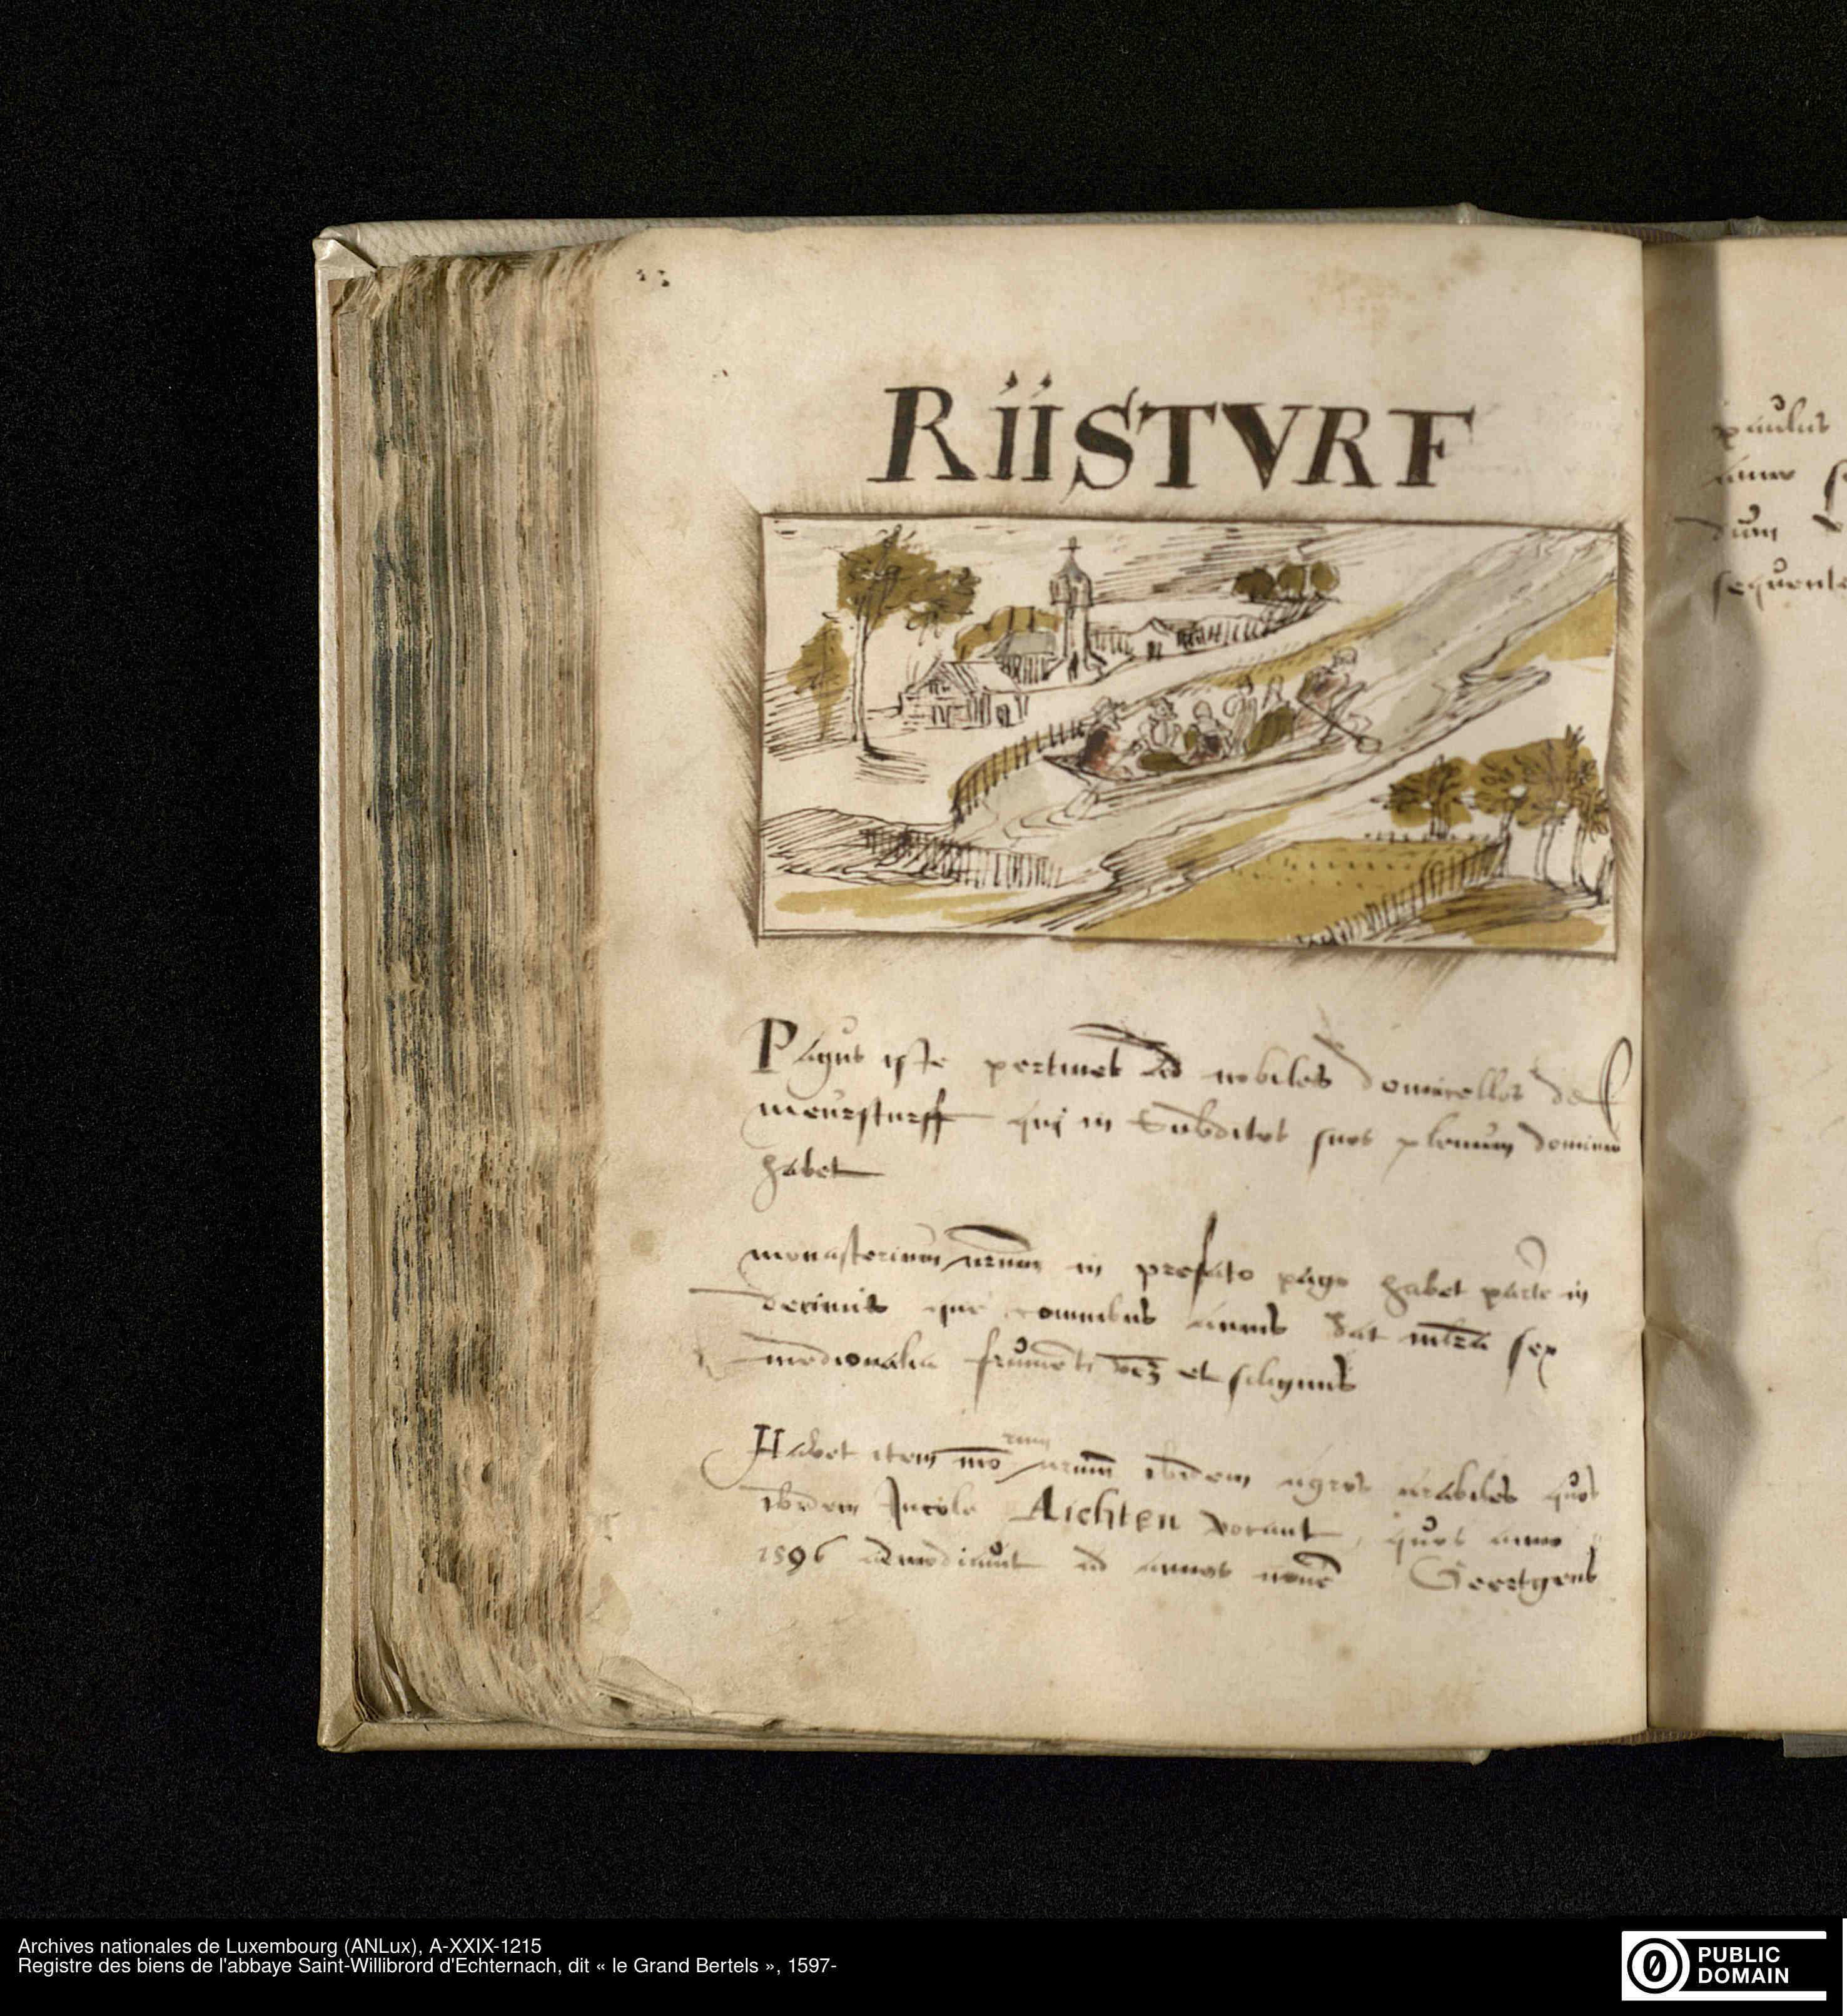 RIISTVRF
Pagus iste pertinet ad nobiles domicellos de
meursturff qui in subditos suos plenum dominiū
habet
monasterium nrūm in prefato pago habet partē in
decimis que omnibus annis dat mltra sex
medionalia frumēti et siliginis
Habet item mo rium nrūm ibidem agros arabiles quos
ibidem Incole Aichten vocant, quos anno
1596 admodiauit ad annos nouē Geertgens
paulus
anno
dum
sequente
Archives nationales de Luxembourg (ANLux), A-XXIX-1215
Registre des biens de l'abbaye Saint-Willibrord d'Echternach, dit « le Grand Bertels », 1597-
PUBLIC
DOMAIN